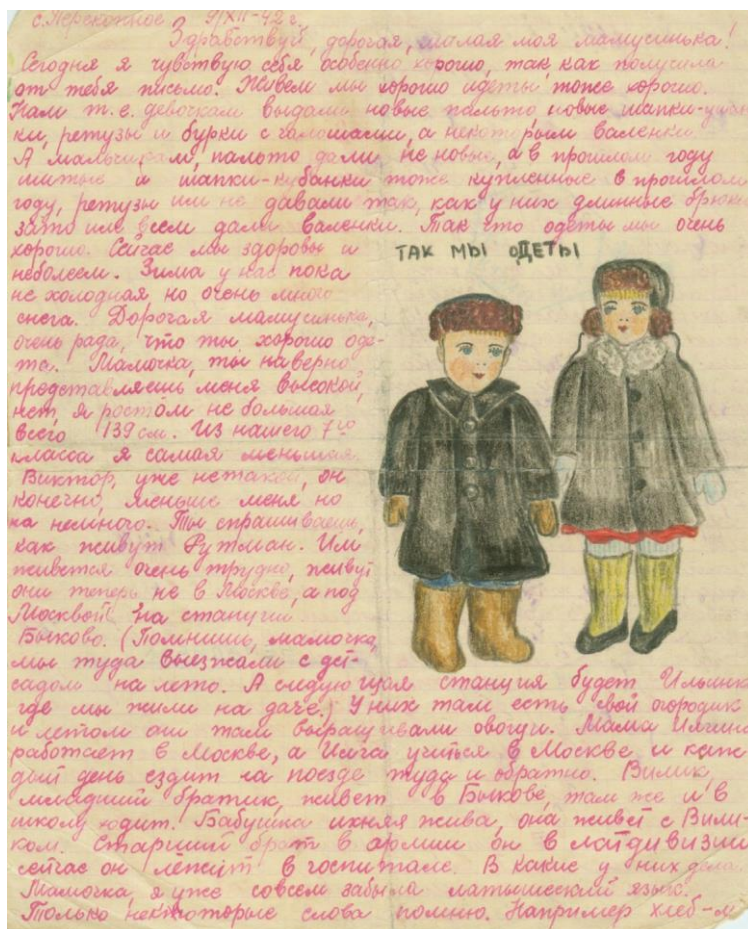 с. Перекопное 9/XII-42 г.
Здравствуй, дорогая, милая моя мамусинька!
Сегодня я чувствую себя особенно хорошо, так как получила
от тебя письмо. Живем мы хорошо одеты тоже хорошо.
Нам т.е. девочкам выдали новые пальто, новые шапки-ушан
ки, ретузы и бурки с галошами, а некоторым валенки.
А мальчикам, пальто дали не новые, а в прошлом году
шитые и шапки-кубанки тоже купленные в прошлом
году, ретузы им не давали так, как у них длинные брюки
зато им всем дали валенки. Так что одеты мы очень
хорошо. Сейчас мы здоровы и
неболеем. Зима у нас пока
не холодная, но очень много
снега. Дорогая мамусинька,
очень рада, что ты хорошо оде-
та. Мамочка, ты наверно
представляешь меня высокой,
нет, я ростом не большая
всего 139 см. Из нашего 7го
класса я самая меньшая.
Виктор, уже нетакой, он
конечно, меньше меня но
на немного. Ты спрашиваешь,
как живут Рутман. Им
живется очень трудно, живут
они теперь не в Москве, а под
Москвой на станции
Быково. (Помнишь, мамочка,
мы туда выезжали с дет-
садом на лето. А следующая станция будет Ильинка
где мы жили на даче.) У них там есть свой огородик
и летом они там выращивали овощи. Мама
работает в Москве, а учиться в Москве и каж
дый день ездит на поезде туда и обратно. Вилик,
младший братик, живет в Быкове, там же и в
школу ходит. Бабушка ихняя жива, она живет с Вили-
ком. Старший брат в армии он в латдивизии
сейчас он лежит в госпитале. В какие у них дела.
Мамочка, я уже совсем забыла латышский язык!
Только некоторые слова помню. Например хлеб-м
ТАК МЫ ОДЕТЫ